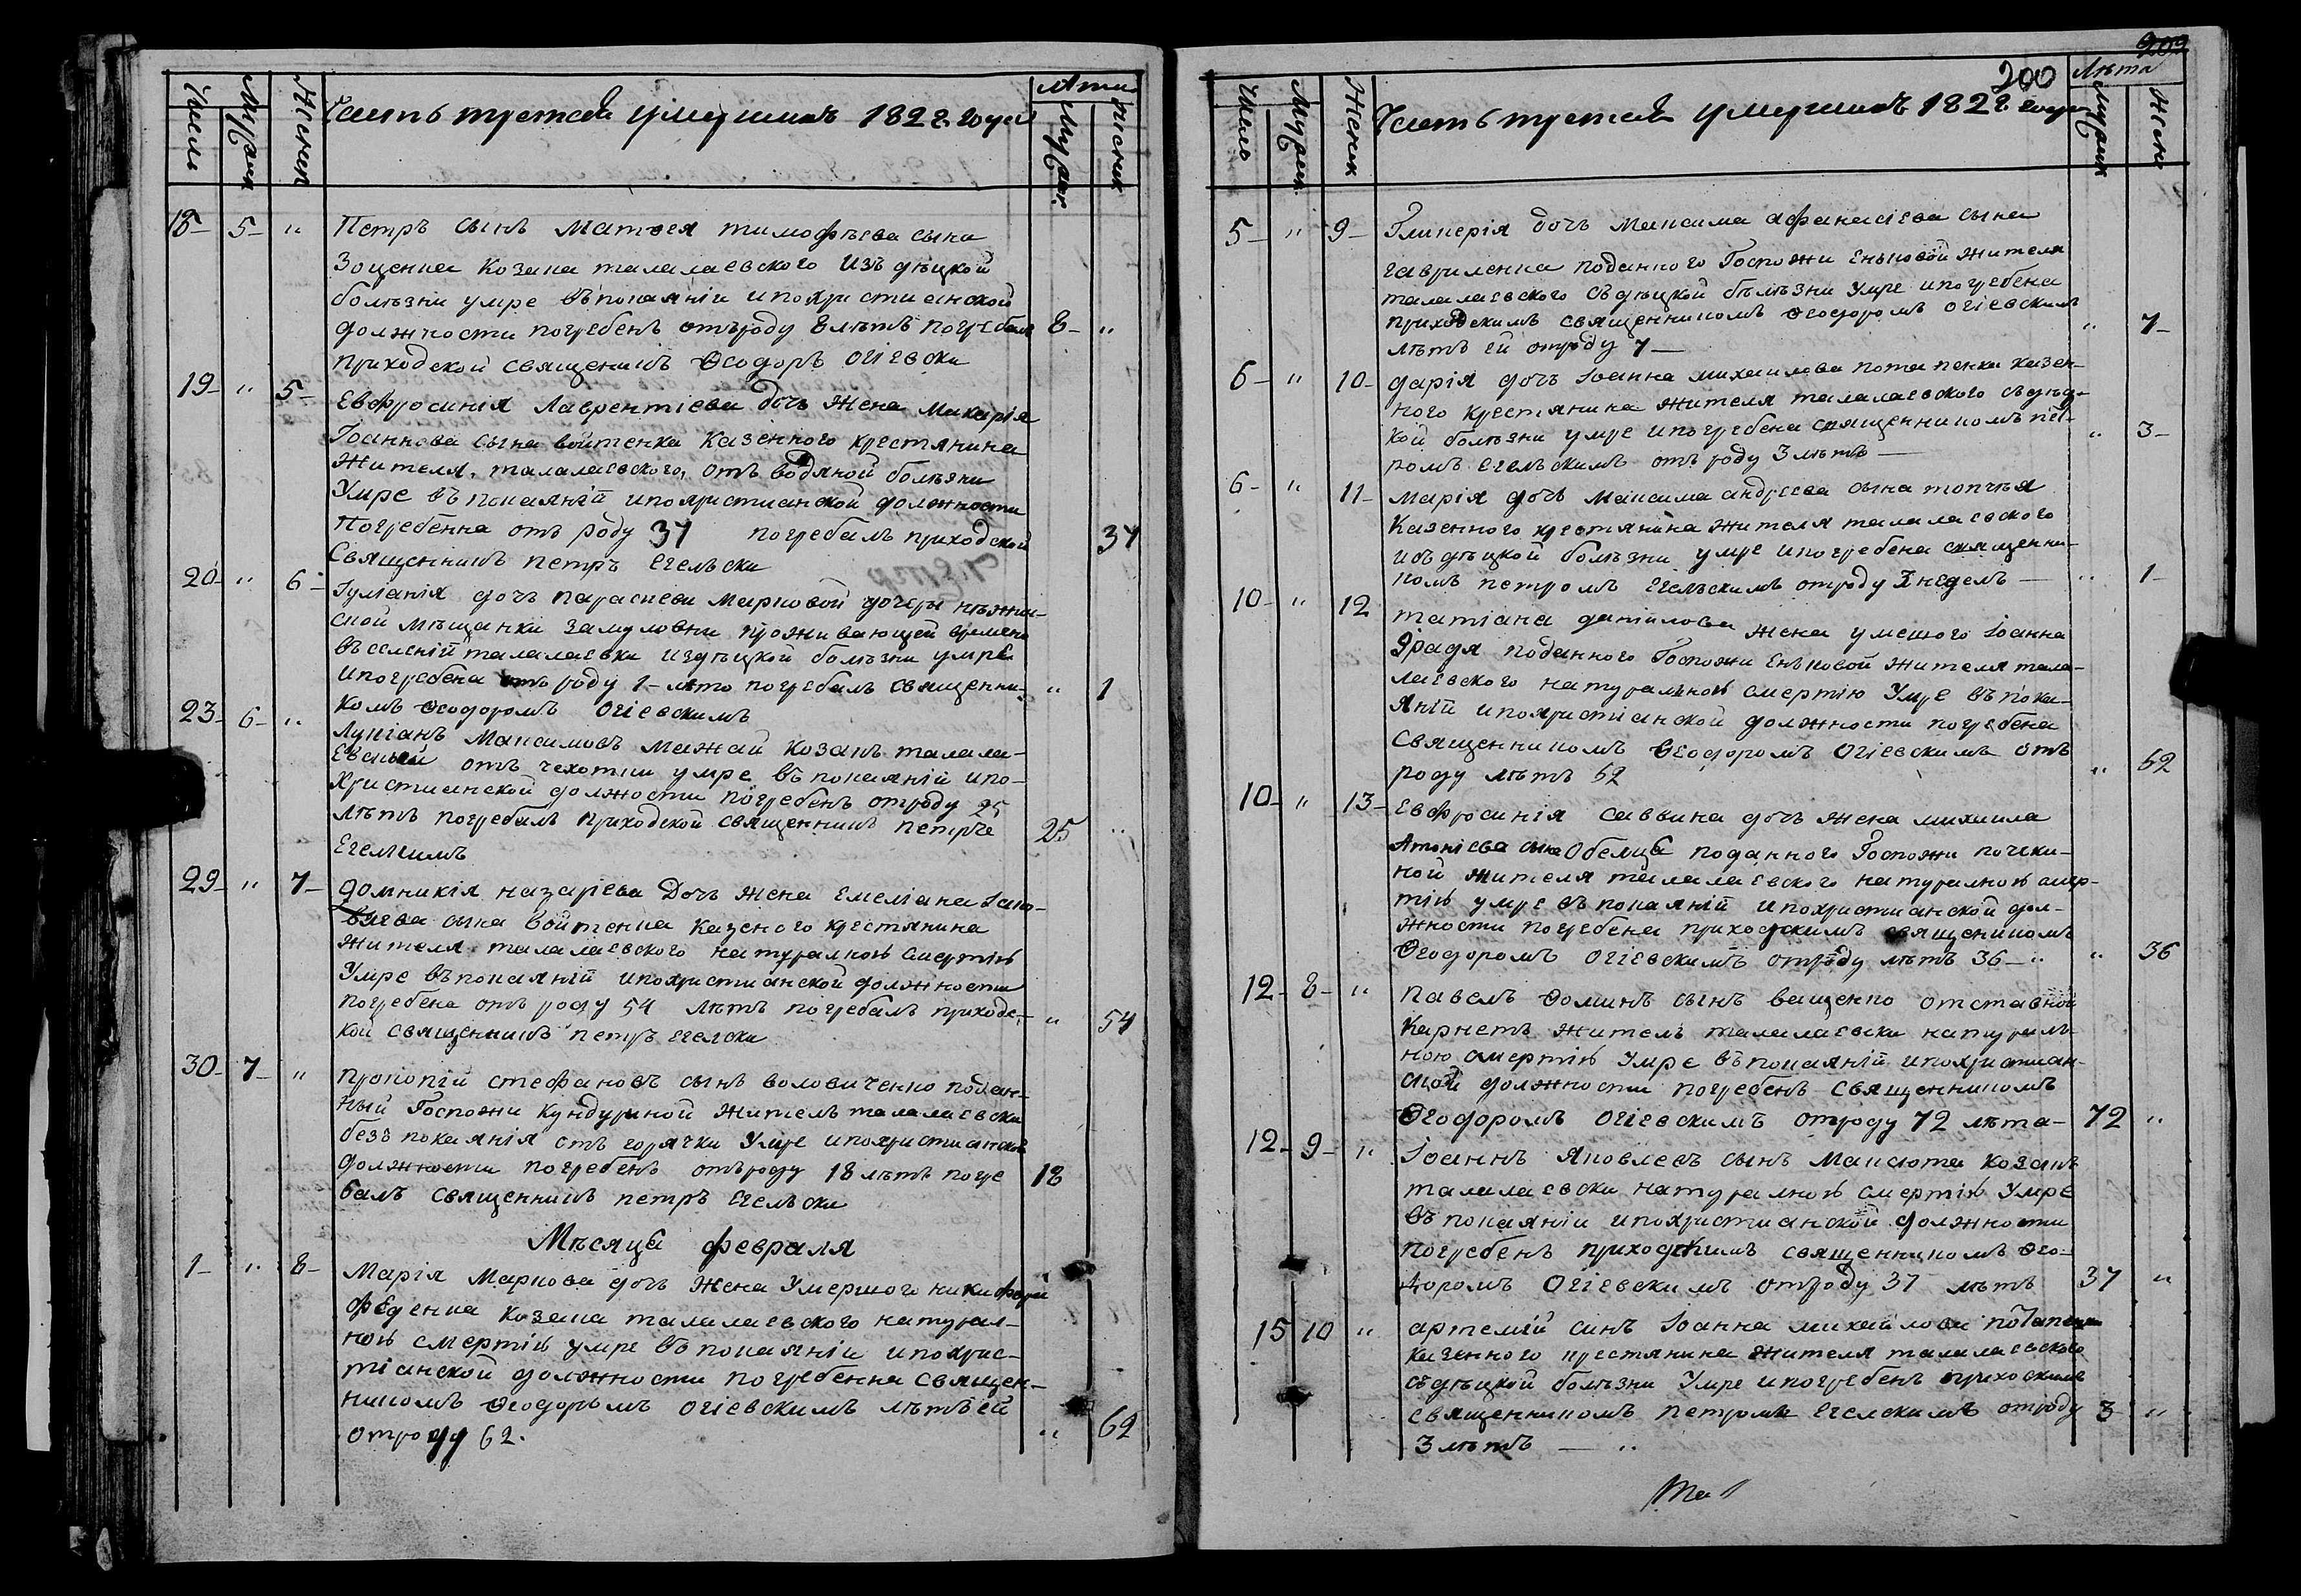 Число
Мужск
Женск
Часть третая умершихъ 1822. года
Лѣта
Мужск.
Женск
18 — 5 — " Петръ сынъ Матѳея тимофѣева сына
Зоценка Козака талалаевского изъ дѣцкой
болѣзни умре въ покаянiи ипохристианской
должности погребенъ отъроду 8 лѣтъ погребалъ 8 — "
приходской священникъ Ѳеодоръ Огiевски
19 — " 5 — Евфросинiя Лаврентiева дочь жена Макарiя
Iоаннова сына войтенка Казенного крестянина
Жителя талалаевского, отъ водяной болѣзни
Умре въ покаянiй ипохристианской должности
Погребенна отъ роду 37 погребалъ приходской 37
Священникъ петръ Егелски
20 — " 6 — Iулiанiя дочь параскеви Марковой дочери нѣжин-
ской мѣщанки проживающей времено
въ селенiй талалаевки издѣцкой болѣзни умре
ипогребена отъ роду 1 — лѣто погребалъ священни- " 1
комъ Ѳеодоромъ Огiевскимъ
23 — 6 — " Лукiанъ Максимовъ Мажай козакъ талала-
Евский отъ чехотки умре въ покаянiй ипо-
христианской должности погребенъ отроду 25
лѣтъ погребалъ приходской священникъ петръ 25 "
Егелскимъ
29 — " 7 — домникiя назарiева Дочь жена Емелiана Iако-
влева сына Войтенка казеного крестянина
жителя талалаевского натуралною смертiю
Умре въ покаянiй ипохристианской должности
погребена отъ роду 54 лѣтъ погребалъ приходс- " 54
кой священникъ петръ Егелски
30 — 7 — " прокопiй стефановъ сынъ воловиченко подан-
ный Госпожи Кундуриной житель талалаевки
безъ покаянiя отъ горячки Умре ипохристианской
должности погребенъ отъроду 18 лѣтъ погре 18
балъ священникъ петръ Егелски
Мѣсяца февраля
1 — " 8 — Марiя Маркова дочь жена Умершого никифора
феденка козака талалаевского натурал-
ною смертiю умре въ покаянiи ипохрис-
тiанской должности погребенна священ-
никомъ Ѳеодоромъ огiевскимъ лѣтъ ей
отроду 62. " 62
202
200
Число
Мужск
Женск
Часть третая умершихъ 1822 года
Лѣта
Мужск
Женск
5 — " 9 — Гликерiя дочь Максима афанасiева сына
гавриленка поданного Госпожи Еньковой жителя
талалаевского съдѣцкой болѣзни умре ипогребена
приходскимъ священникомъ Ѳеодоромъ огiевскимъ " 7 —
лѣтъ ей отроду 7 —
6 — " 10 — дарiя дочь Iоанна михаилова потапенка казен-
ного крестянина жителя талалаевского съдѣц-
кой болѣзни умре ипогребена священникомъ пет- " 3 —
ромъ егелскимъ отъ роду 3 лѣтъ —
6 — " 11 — марiя дочь максима андреева сына топчѣя
Казенного крестянина жителя талалаевского
изъ дѣцкой болѣзни умре ипогребена священни-
комъ петромъ Егелскимъ отроду недель — " 1 —
10 — " 12 татiана данiилова жена умешого Iоанна
поданного Госпожи Еньковой жителя тала-
лаевского натуралною смертiю Умре въ пока-
янiй ипохристiанской должности погребена
священникомъ Ѳеодоромъ Огiевскимъ отъ
роду лѣтъ 52 " 52
10 — " 13 — Евфросинiя саввина дочь жена михаила
Антонiева сына Обелца поданного Госпожи почеки-
ной жителя талалаевского натуралною смер-
тiю умре въ покаянiй ипохристианской дол-
жности погребена приходскимъ священикомъ
Ѳеодоромъ Огiевскимъ отроду лѣтъ 36 — " " 36
12 — 8 — " павелъ Ѳоминъ сынъ ващенко отставной
Карнетъ житель талалаевки натурал-
ною смертiю Умре въ покаянiй ипохристиан-
ской должности погребенъ священникомъ
Ѳеодоромъ Огiевскимъ отроду 72 лѣта — 72 "
12 — 9 — " Iоаннъ Яковлевъ сынъ Максюта козакъ
талалаевки натуралною смертiю Умре
въ покаянiи ипохристианской должности
погребенъ приходскимъ священникомъ Ѳео-
доромъ Огiевскимъ отроду 37 лѣтъ 37 "
15 10 " артемiй синъ Iоанна михайлова потапенка
казенного крестянина жителя талалаевского
съдѣцкой болѣзни Умре ипогребенъ прихоскимъ
священникомъ петромъ Егелскимъ отроду 3 "
3 лѣтъ — "